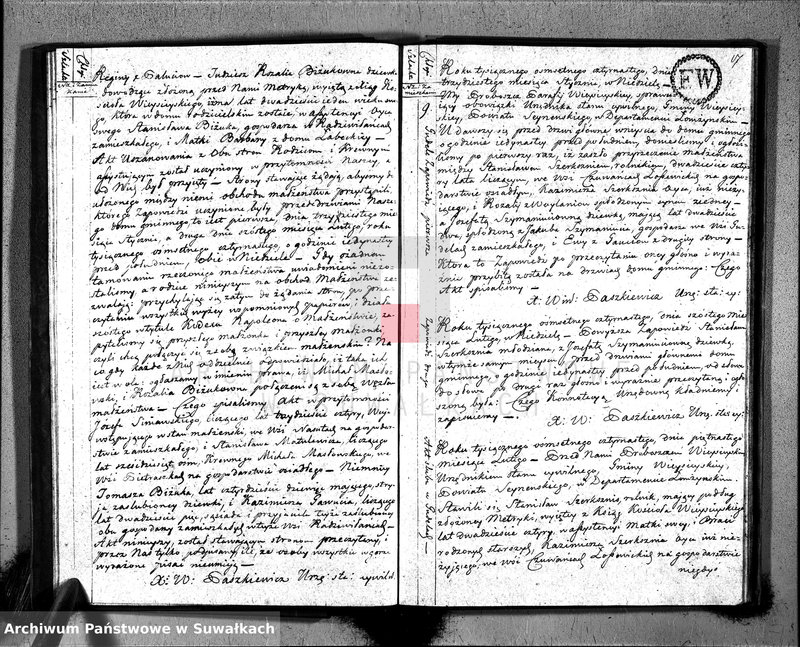 Reginy z Paluciów – Tudziesz Rozalia Biżukowna dziewka
dowodząca złożoną przed Nami Metryką, wyjętą z Ksiąg Ko-
ścioła Wieysieyskiego, iż ma lat dwadzieścia ieden wieku swe-
go, która w domu rodzicielskim zostaie, w assystencyi Oyca
swego Stanisława Biżuka, gospodarza w Radziwilańcach
zamieszkałego, i Matki Barbary z domu Labeckiey –
Akt Uszanowania z Obu stron Rodzicom i Krewnym
assystuiącym został uczyniony w przytomności Naszey, a
O Nich był przyięty – Strony stawaiące żądaią, abyśmy do
ułożonego między niemi obchodu małżeństwa przystąpili,
którego Zapowiedzi uczynione były przed drzwiami Nasze-
go domu gminnego to iest pierwsza, dnia trzydziestego mie-
siąca Stycznia, a druga dnia szóstego miesiąca Lutego, roku
tysiącznego osmsetnego cztyrnastego, o godzinie iedynastey
przed południem, obie w Niedziele – Gdy o żadnym
tamowaniu rzeczonego małżeństwa uwiadomieni nie zo-
staliśmy, a rodzice ninieyszym na obchod Małżeństwa ze-
zwalaią: przychylaiąc się zatym do żądania stron, po prze-
czytaniu wszystkich wyżey wspomnionych papierów, i działu
szóstego w tytule Kodexu Napoleona o Małżeństwie, za-
pytaliśmy się przyszłego małżonka i przyszłey małżonki,
czyli chcą połączyć się z sobą związkiem małżeńskim? Na
co gdy każde z Nich oddzielnie odpowiedziało, iż taka ich
iest wola: ogłaszamy w imieniu prawa, iż Michał Masłow-
ski, i Rozalia Biżukowna połączeni są z sobą Węzłem
małżeństwa – Czego spisaliśmy Akt w przytomności
Józefa Siniawskiego, liczącego lat trzydzieście cztyry, Wuja
wstępuiącego w stan małżeński, we Wsi Wasutach na gospodar-
stwie zamieszkałego, i Stanisława Matulewicza, liczącego
lat sześćdziesiąt osm, Krewnego Michała Masłowskiego, we
Wsi Pietraszach na gospodarstwie osiadłego – Niemniey
Tomasza Biżuka, lat cztyrdzieście dziewięć maiącego, stry-
ia zaślubioney dziewki, i Kazimierza Jawucia, liczącego
lat dwadzieście pięć, sąsiada i przyiaciela tyże zaślubioney
obu gospodarzy zamieszkałych w tyże Wsi Radziwilańcach –
Akt ninieyszy, został stawaiącym stronom przeczytany, i
przez Nas tylko podpisany, ile, że osoby wszystkie w gorze
wyrażone pisać nieumieią –
X: W: Daszkiewicz Urzę: sta: cywiln:
17
EW
Roku tysiącznego osmsetnego cztyrnastego, dnia
trzydziestego miesiąca Stycznia, w Niedzielę –
My Proboszcz Parafij Wieysieyskiey, sprawuią-
cy obowiązki Urzędnika stanu cywilnego, Gminy Wieysiey-
skiey, Powiatu Seynenskiego, w Departamencie Łomżynskim –
Udawszy się przed drzwi główne wniyścia do domu gminnego
o godzinie iedynastey przed południem, donieśliśmy, i ogłosi-
liśmy po pierwszy raz, iż zaszło przyrzeczenie małżeństwa
między Stanisławem Szerksznim, rolnikiem, dwadzieście czty-
ry lata liczącym, we Wsi Czuwancach Łopowickich na gospo-
darstwie osiadłym, Kazimierza Szerksznia Oyca, iuż nieży-
iącego, i Rozaly z Woylaniow spłodzonym synem z iedney –
a Jozefatą Szymaniuiowną dziewką, maiącą lat dwadzieście
dwa, spłodzoną z Jakuba Szymaniucia, gospodarza we Wsi Ju-
delach zamieszkałego, i Ewy z Jauciow z drugiey strony –
Która to Zapowiedź po przeczytaniu oney głośno i wyraź-
nie przybita została na drzwiach domu gminnego: Czego
Akt spisaliśmy –
X: W: Daszkiewicz Urzę: sta: cy:
9.
Zapowiedź pierwsza
Roku tysiącznego osmsetnego cztyrnastego, dnia szóstego mie-
siąca Lutego, w Niedzielę – Powyższa Zapowiedź Stanisława
Szerksznia młodziana, z Jozefatą Szymaniuiowną dziewką,
w tymże samym mieyscu przed drzwiami głównemi domu
gminnego, o godzinie iedynastey przed południem, od słowa
do słowa po drugi raz głośno i wyraźnie przeczytaną, i ogło-
szoną była: Czego Konnotacyą Urzędową kładziemy, i
zapisuiemy –
X: W: Daszkiewicz Urzę: sta: cy:
Zapowiedź druga
Roku tysiącznego osmsetnego cztyrnastego, dnia piętnastego
miesiąca Lutego – Przed Nami Proboszczem Wieysieyskim
Urzędnikiem stanu cywilnego, Gminy Wieysieyskiey,
Powiatu Seynenskiego, w Departamencie Łomżynskim –
Stawił się Stanisław Szerksznis, rolnik, maiący podług
złożoney Metryki, wyiętey z Ksiąg Kościoła Wieysieyskiego
lat dwadzieście cztyry, w assystencyi Matki swey, i Braci
rodzonych starszych, Kazimierza Szerksznia Oyca iuż nie-
żyiącego, we Wsi Czuwancach Łopowickich na gospodarstwie
niegdyś
Archiwum Państwowe w Suwałkach